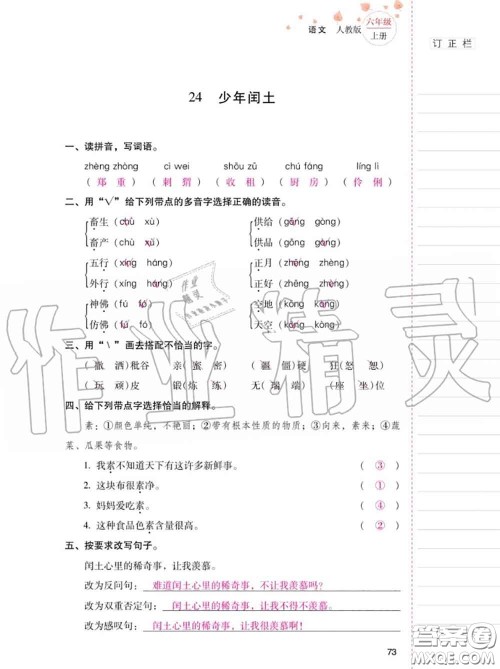 语文 人教版 六年级上册
订正栏
24 少年闰土
一、读拼音，写词语。
zhèng zhòng cì wei shōu zū chú fáng líng lì
（郑重）（刺猬）（收租）（厨房）（伶俐）
二、用“√”给下列带点的多音字选择正确的读音。
畜生（chù xù） 供给（gōng gòng）
畜产（chù xù） 供品（gōng gòng）
五行（xíng háng） 正月（zhēng zhèng）
外行（xíng háng） 正好（zhēng zhèng）
神佛（fú fó） 空地（kòng kōng）
仿佛（fú fó） 天空（kòng kōng）
三、用“\”画去搭配不恰当的字。
（撒 洒）稻谷 亲（蜜 密） （疆 僵）硬 狂（怒 怨）
（玩 顽）皮 锻（炼 练） 无（瑞 端） （座 坐）位
四、给下列带点字选择恰当的解释。
素：①颜色单纯，不艳丽；②带有根本性质的物质；③向来；④蔬
菜、瓜果等食物。
1. 我素不知道天下有这许多新鲜事。 （③）
2. 这块布很素净。 （①）
3. 妈妈爱吃素。 （④）
4. 这种食品色素含量很高。 （②）
五、按要求改写句子。
闰土心里的稀奇事，让我羡慕。
改为反问句：难道闰土心里的稀奇事，不让我羡慕吗？
改为双重否定句：闰土心里的稀奇事，让我不得不羡慕。
改为感叹句：闰土心里的稀奇事，让我很羡慕啊！
73
作业精灵